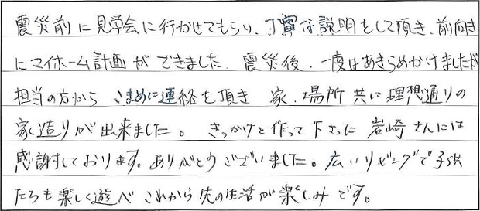 震災前に見学会に行かせてもらい、丁寧な説明をして頂き、前向き
にマイホーム計画ができました。震災後、一度はあきらめかけましたが
担当の方から こまめに連絡を頂き 家、場所 共に理想通りの
家造りが出来ました。 きっかけを作って下さった 岩崎さんには
感謝しております。ありがとうございました。広いリビングで子供
たちも楽しく遊べ これから先の生活が楽しみです。